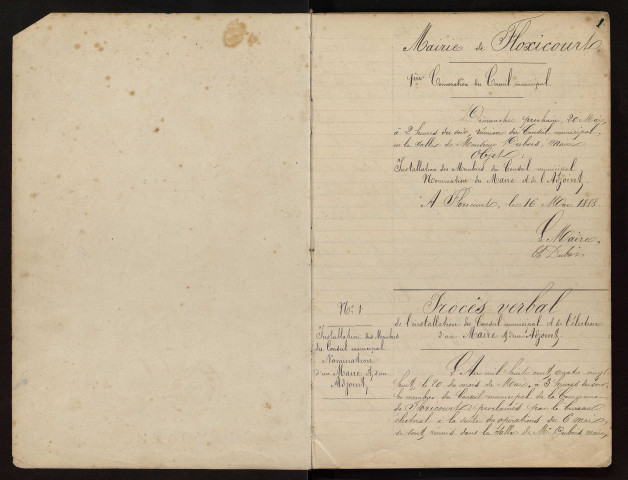 1
Mairie de Floxicourt
1ère Convocation du Conseil municipal.
Dimanche prochain, 20 Mai,
à 2 heures du soir, réunion du Conseil municipal,
en la salle de Monsieur Dubois, maire
Objet,
Installation des Membres du Conseil municipal
Nomination du Maire et de l'Adjoint,
A Floxicourt, le 16 Mai 1888.
Le Maire,
Dubois
No 1
Installation des Membres
du Conseil municipal
Nomination
d'un Maire & d'un
Adjoint,
Procès verbal
de l'installation du Conseil municipal et de l'élection
d'un Maire & d'un Adjoint,
L'An mil huit cent quatre vingt
huit, le 20 du mois de Mai, à 3 heures du soir,
les membres du Conseil municipal de la Commune
de Floxicourt proclamés par le bureau
électoral à la suite des opérations du 6 mai
se sont réunis dans la salle de Mr Dubois maire,